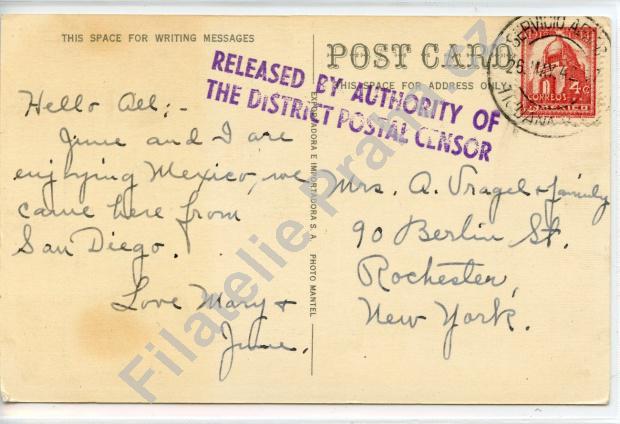 THIS SPACE FOR WRITING MESSAGES
POST CARD
THIS SPACE FOR ADDRESS ONLY
RELEASED BY AUTHORITY OF
THE DISTRICT POSTAL CENSOR
Hello All; -
June and I are
enjoying Mexico, we
came here from
San Diego.
Love Mary &
June.
EXPORTADORA E IMPORTADORA S. A. PHOTO MANTEL
Mrs. A. Vragel & family
90 Berlin St.
Rochester,
New York.
SERVICIO
26 MAY 4
4¢
CORREOS
MEXICO
Filatelie Praha cz